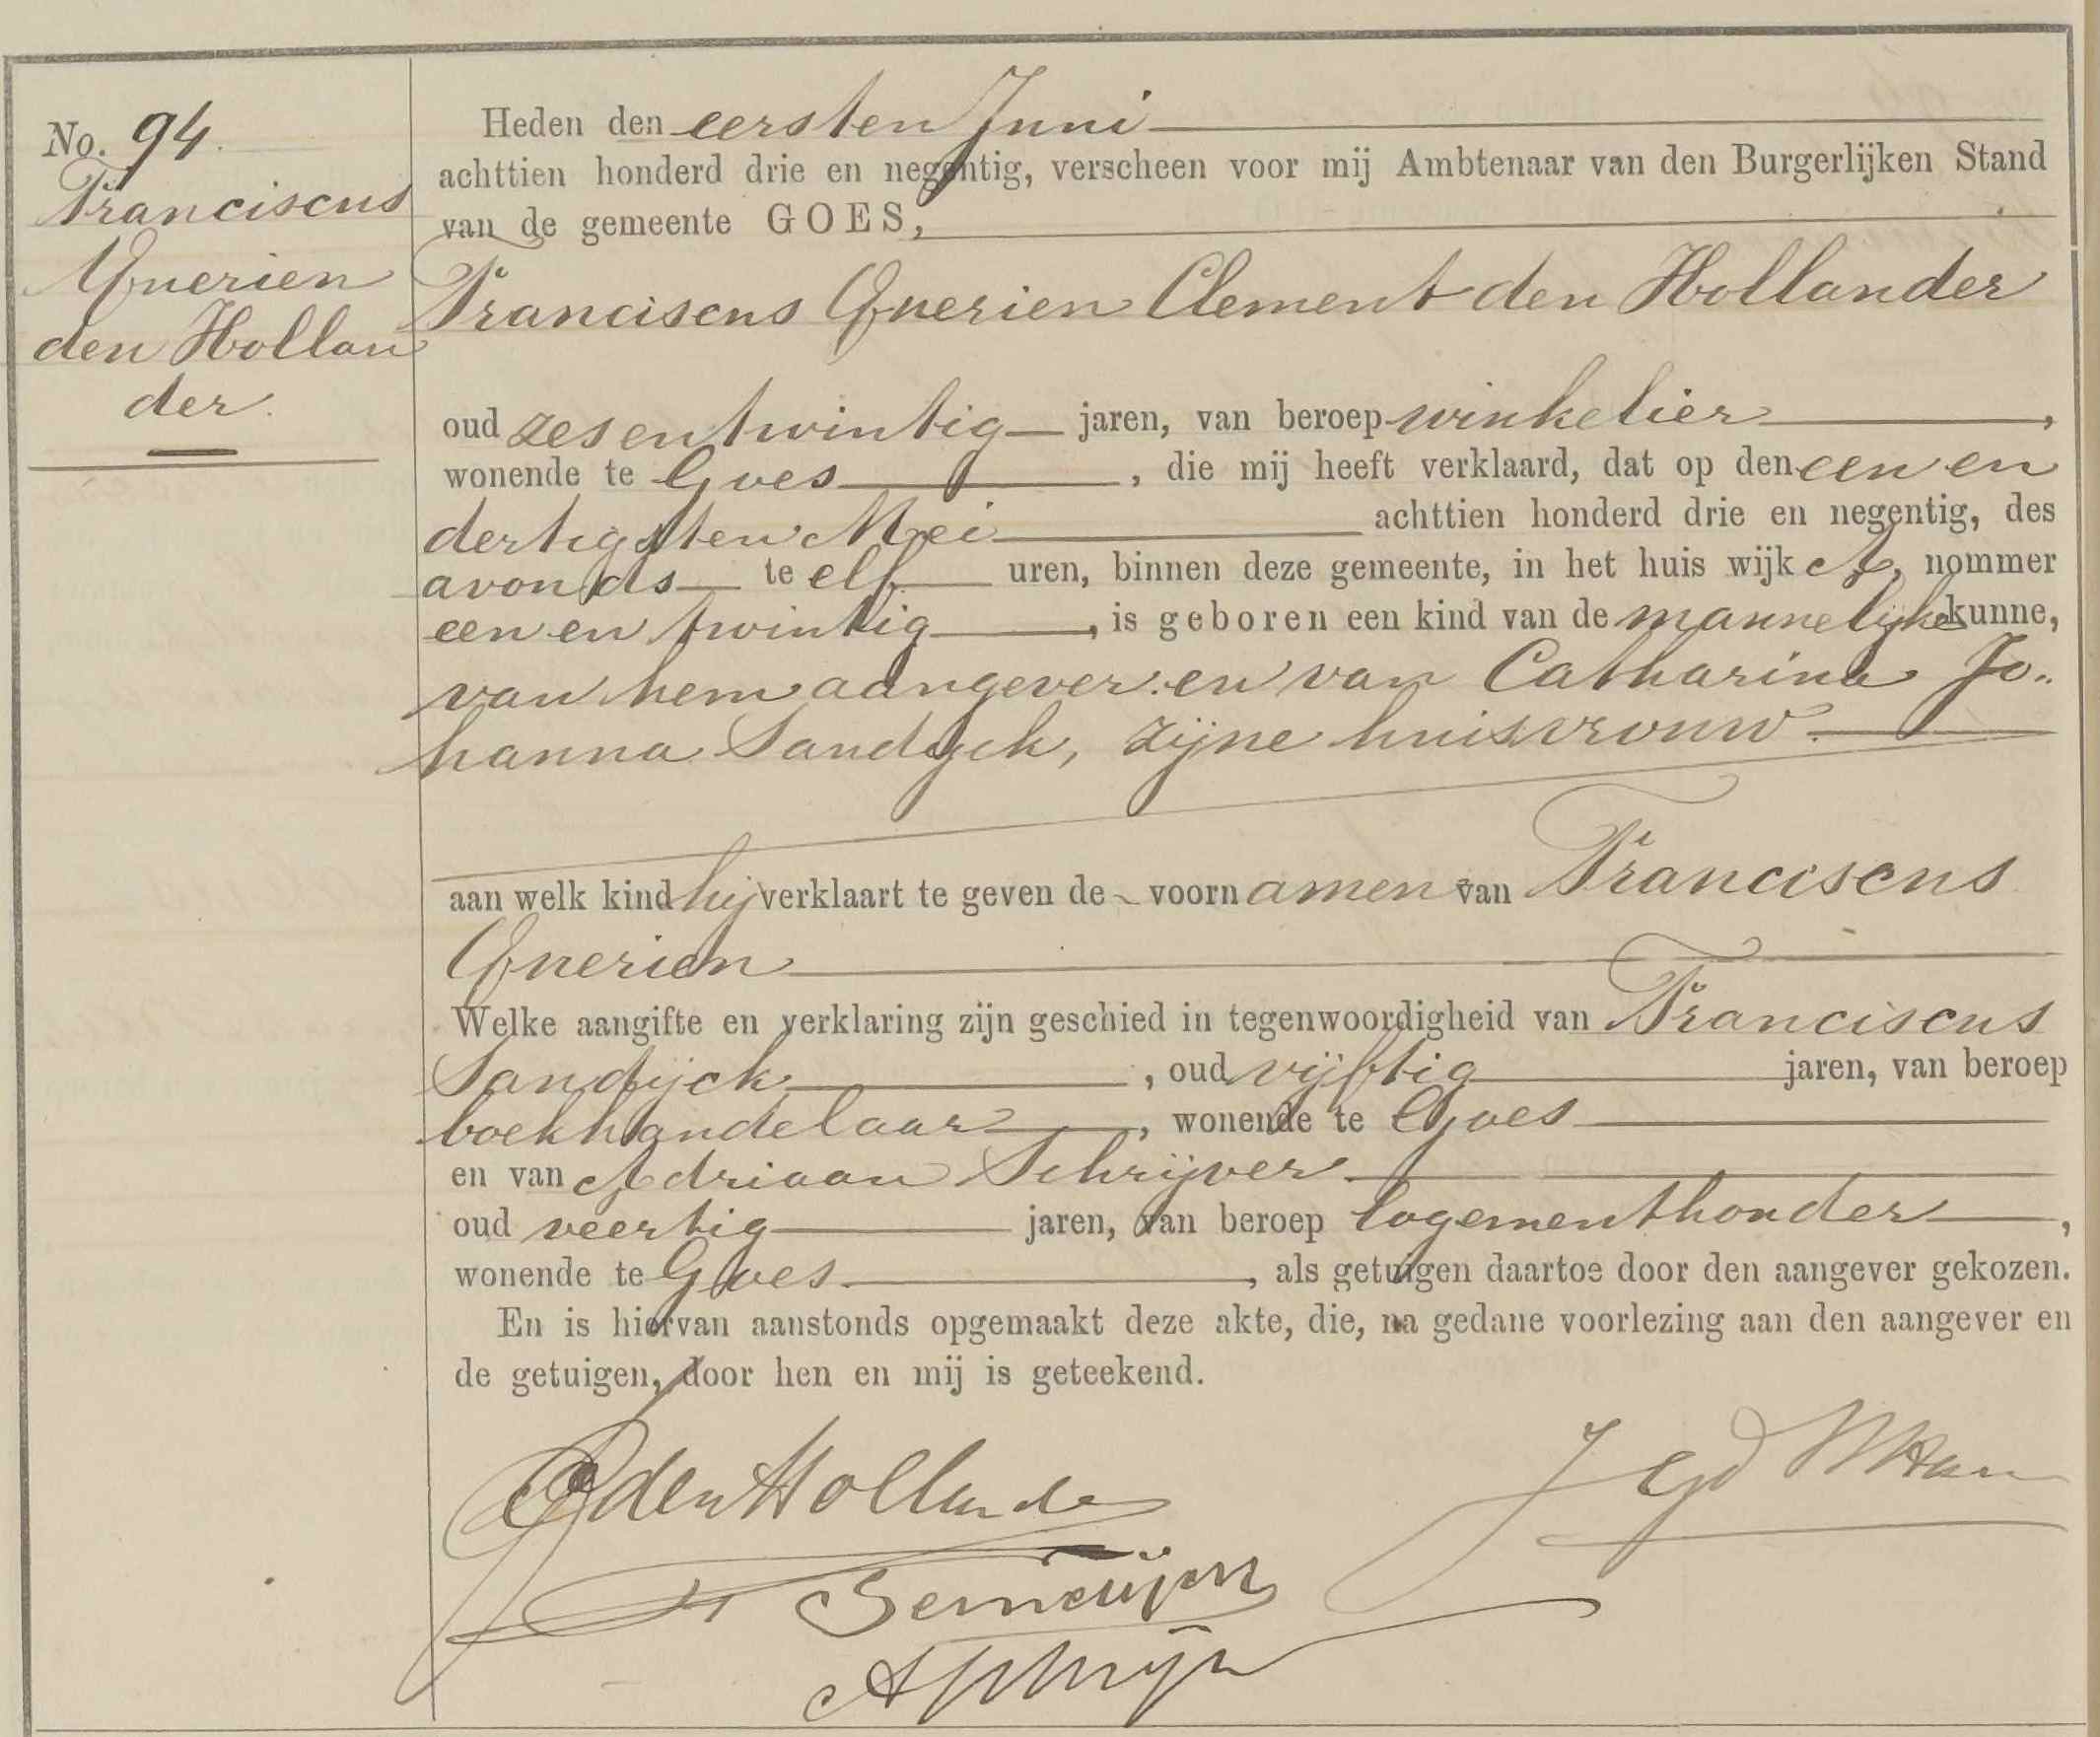 No. 94.
Franciscus
Querien
den Hollan
der.
Heden den eersten Juni
achttien honderd drie en negentig, verscheen voor mij Ambtenaar van den Burgerlijken Stand
van de gemeente GOES,
Franciscus Querien Clement den Hollander
oud zes en twintig jaren, van beroep winkelier,
wonende te Goes, die mij heeft verklaard, dat op den een en
dertigsten Mei achttien honderd drie en negentig, des
avonds te elf uren, binnen deze gemeente, in het huis wijk A, nommer
een en twintig, is geboren een kind van de mannelijke kunne,
van hem aangever en van Catharina Jo„
hanna Sandijck, zijne huisvrouw.
aan welk kind hij verklaart te geven de voornamen van Franciscus
Querien
Welke aangifte en verklaring zijn geschied in tegenwoordigheid van Franciscus
Sandijck, oud vijftig jaren, van beroep
boekhandelaar, wonende te Goes
en van Adriaan Schrijver
oud veertig jaren, van beroep logementhouder,
wonende te Goes, als getuigen daartoe door den aangever gekozen.
En is hiervan aanstonds opgemaakt deze akte, die, na gedane voorlezing aan den aangever en
de getuigen, door hen en mij is geteekend.
den Hollander